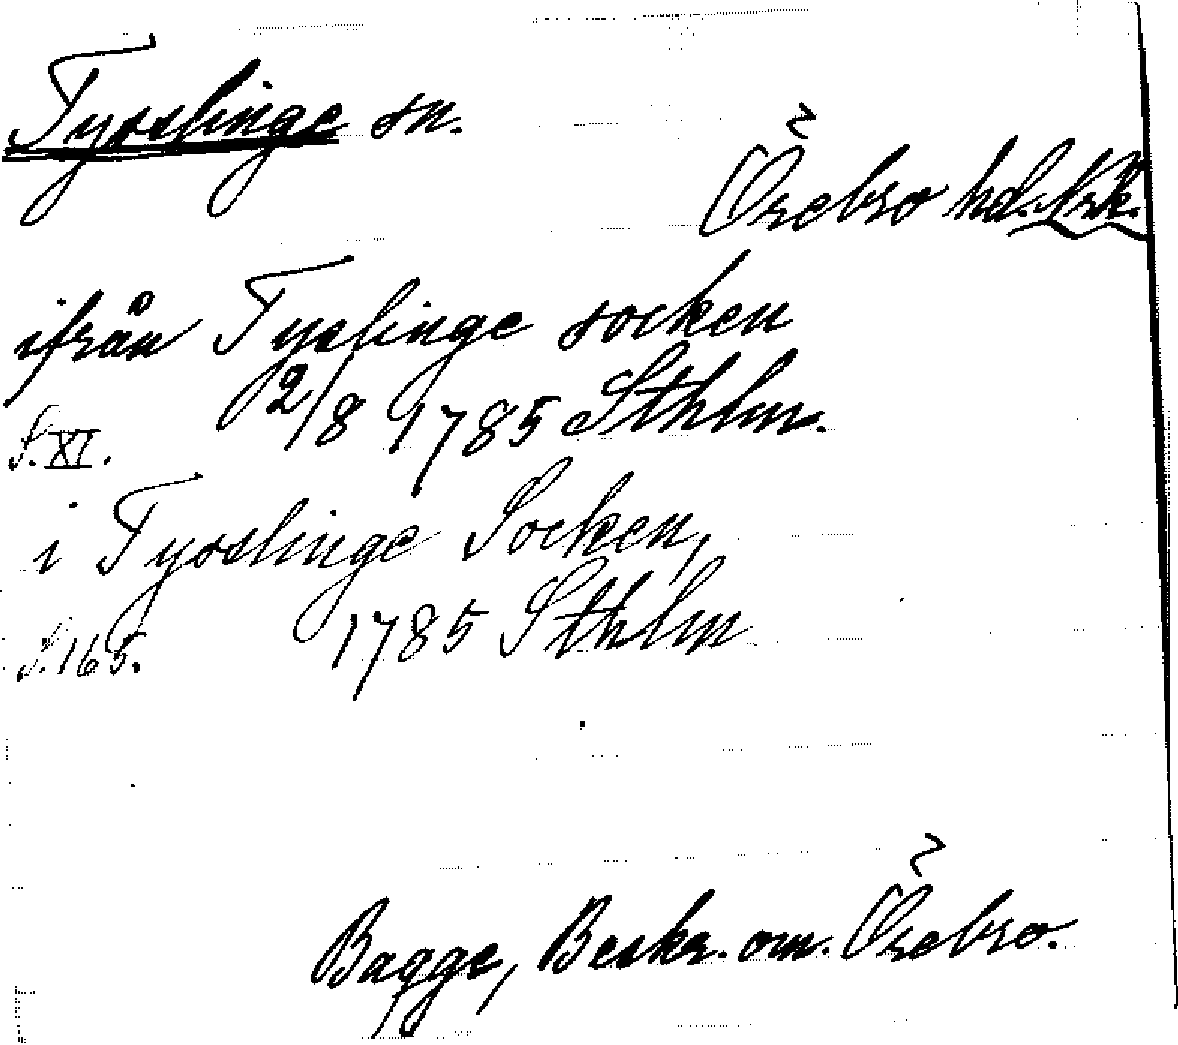 Tysslinge sn.
Örebro hd. Nrk.
ifrån Tyslinge socken
2/8 1785 Sthlm.
S. XI.
i Tysslinge Socken,
S. 165. 1785 Sthlm
Bagge, Beskr. om. Örebro.